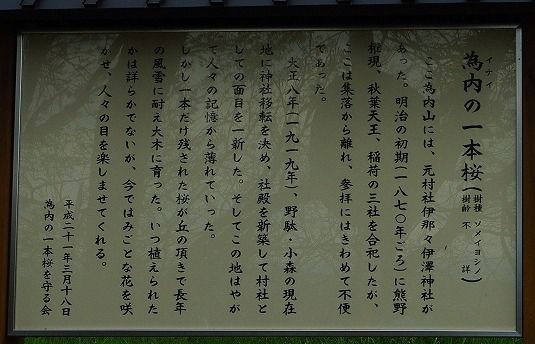 為内の一本桜(樹種 ソメイヨシノ 樹齢 不詳)
イナイ
ここ為内山には、元村社伊那々伊澤神社が
あった。明治の初期(一八七〇年ごろ)に熊野
権現、秋葉天王、稲荷の三社を合祀したが、
ここは集落から離れ、参拝にはきわめて不便
であった。
大正八年(一九一九年)、野駄・小森の現在
地に神社移転を決め、社殿を新築して村社と
しての面目を一新した。そしてこの地はやが
て人々の記憶から薄れていった。
しかし一本だけ残された桜が丘の頂きで長年
の風雪に耐え大木に育った。いつ植えられた
かは詳らかでないが、今ではみごとな花を咲
かせ、人々の目を楽しませてくれる。
平成二十一年三月十八日
為内の一本桜を守る会